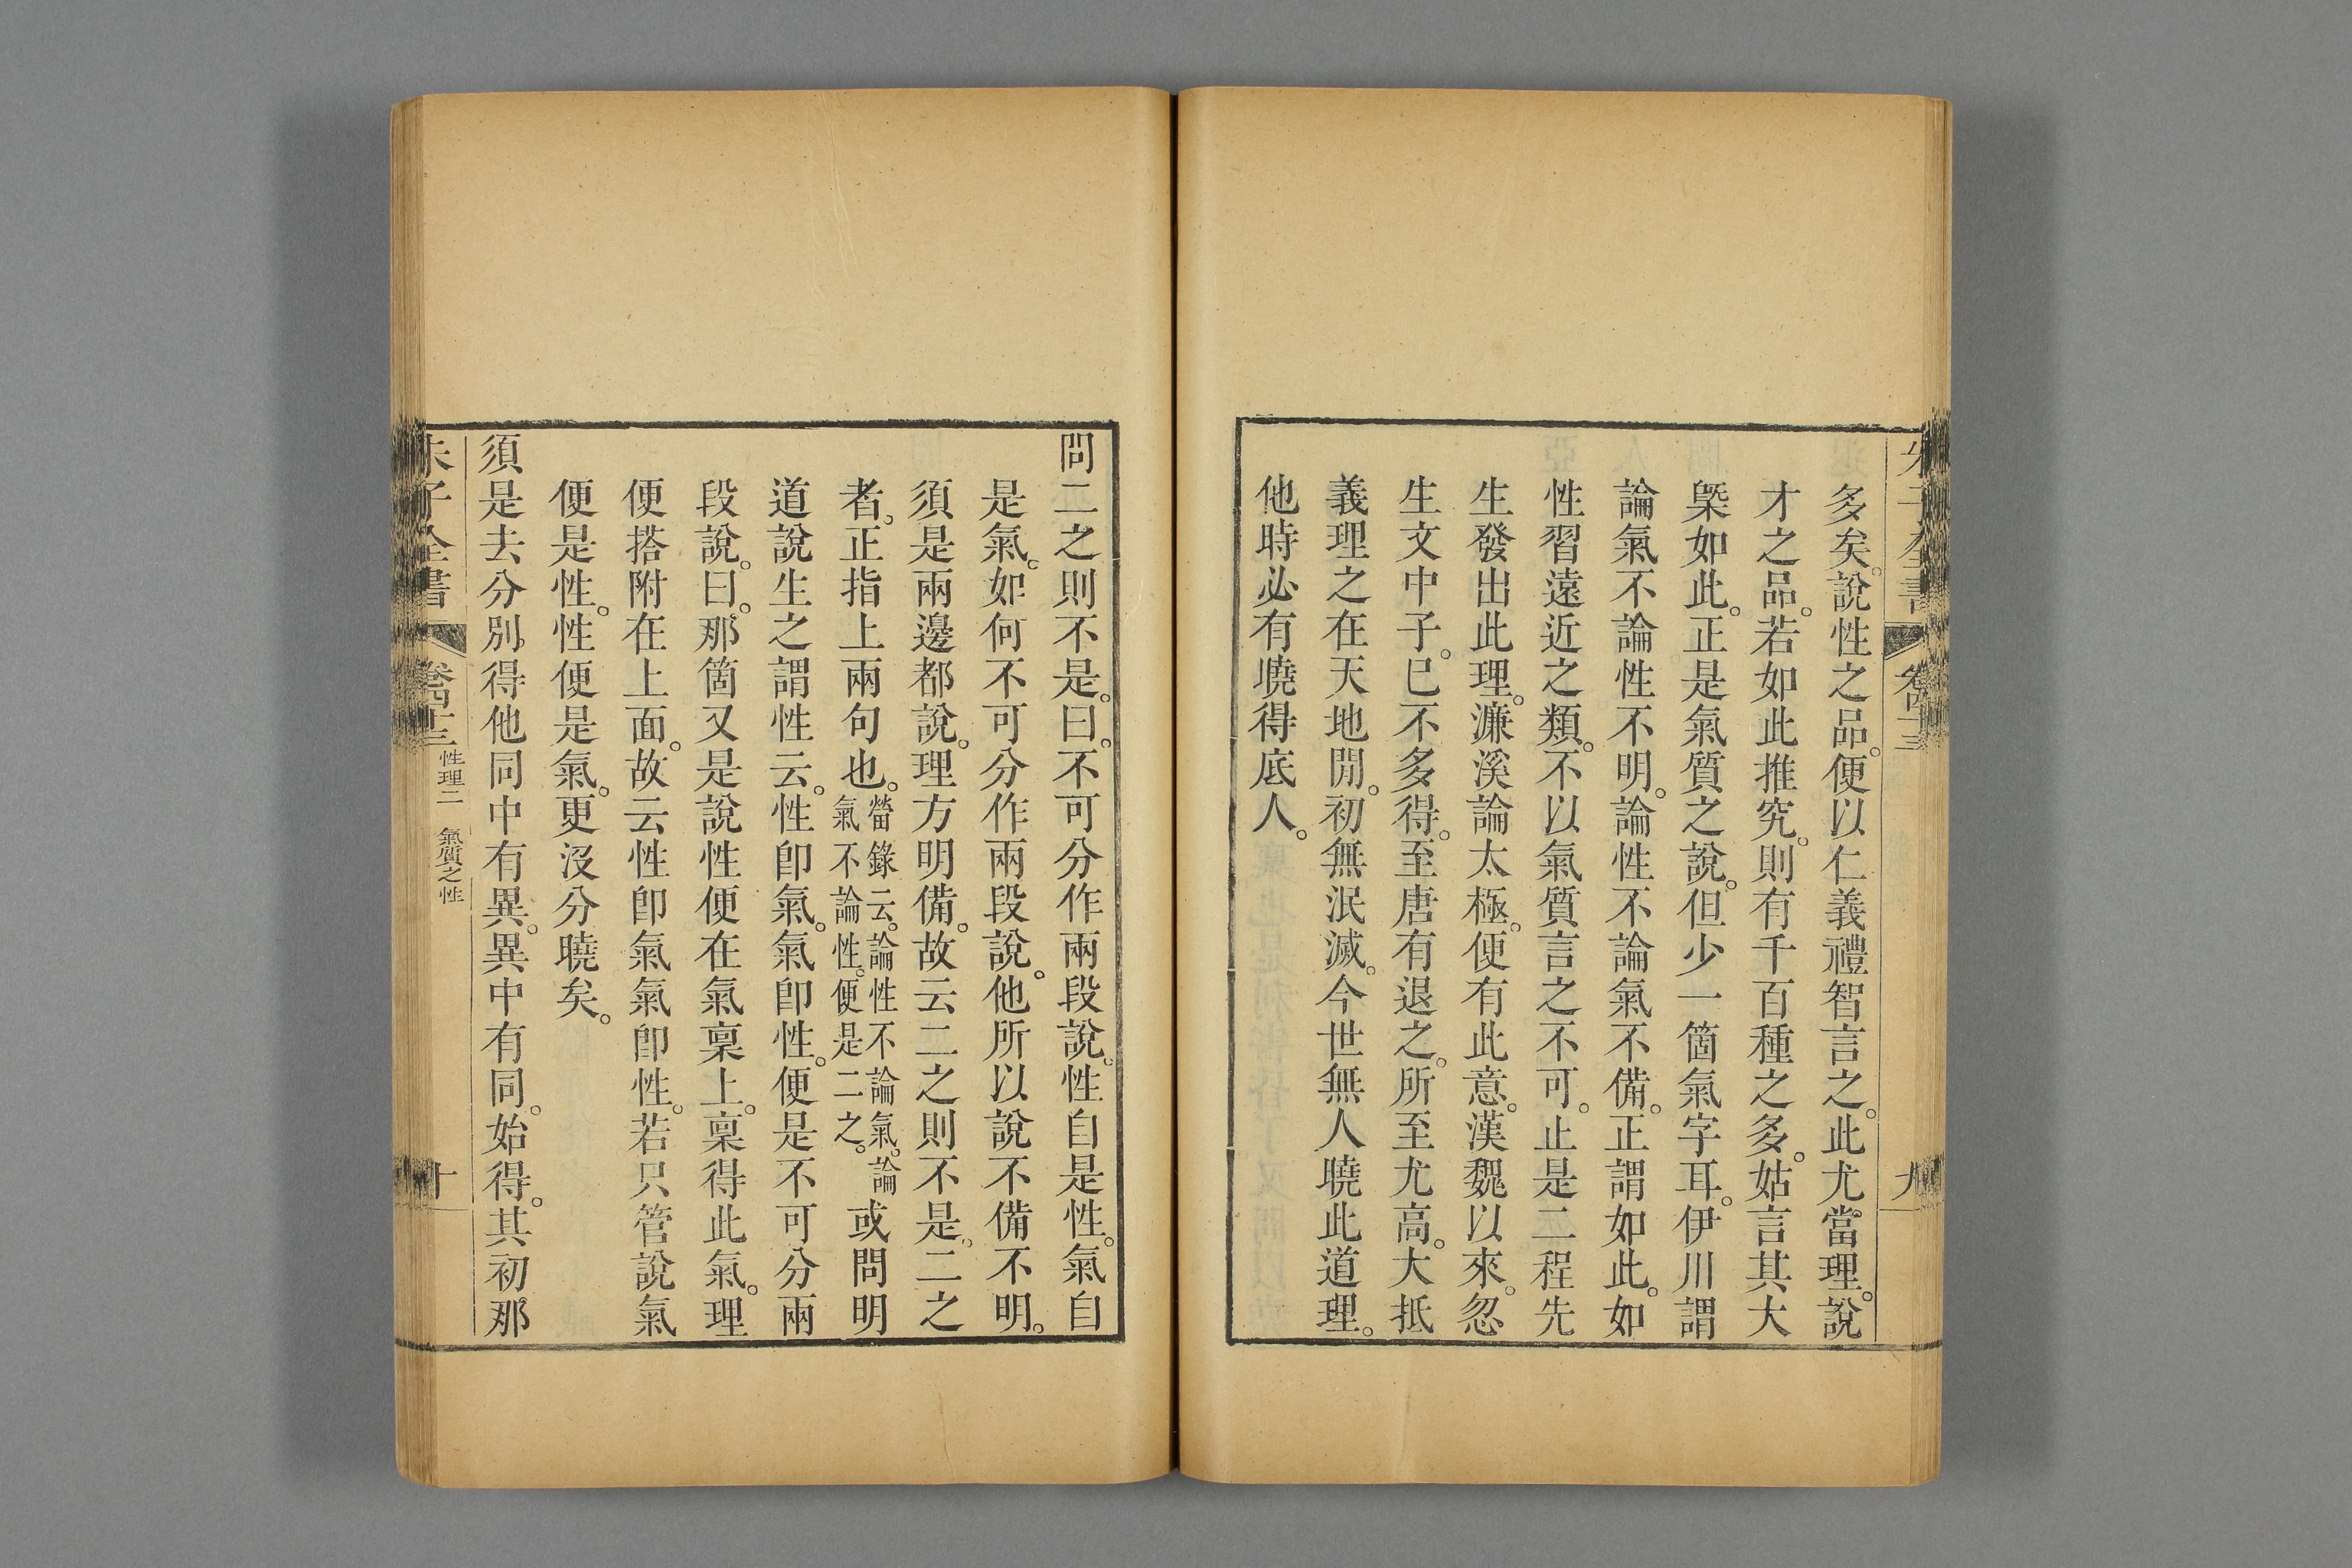 多矣。說性之品。便以仁義禮智言之。此尤當理。說
才之品。若如此推究。則有千百種之多。姑言其大
槩如此。正是氣質之說。但少一箇氣字耳。伊川謂
論氣不論性不明。論性不論氣不備。正謂如此。如
性習遠近之類。不以氣質言之不可。止是二程先
生發出此理。濂溪論太極。便有此意。漢魏以來。忽
生文中子。已不多得。至唐有退之。所至尤高。大抵
義理之在天地閒。初無泯滅。今世無人曉此道理。
他時必有曉得底人。
問二之則不是。曰。不可分作兩段說。性自是性。氣自
是氣。如何不可分作兩段說。他所以說不備不明。
須是兩邊都說。理方明備。故云二之則不是。二之
者。正指上兩句也。
𤫊錄云。論性不論氣。論
氣不論性。便是二之。
或問明
道說生之謂性云。性卽氣。氣卽性。便是不可分兩
段說。曰。那箇又是說性便在氣稟上。稟得此氣。理
便搭附在上面。故云性卽氣氣卽性。若只管說氣
便是性。性便是氣。更沒分曉矣。
須是去分別得他同中有異。異中有同。始得。其初那
朱子全書
卷四十三
性理二 氣質之性
十